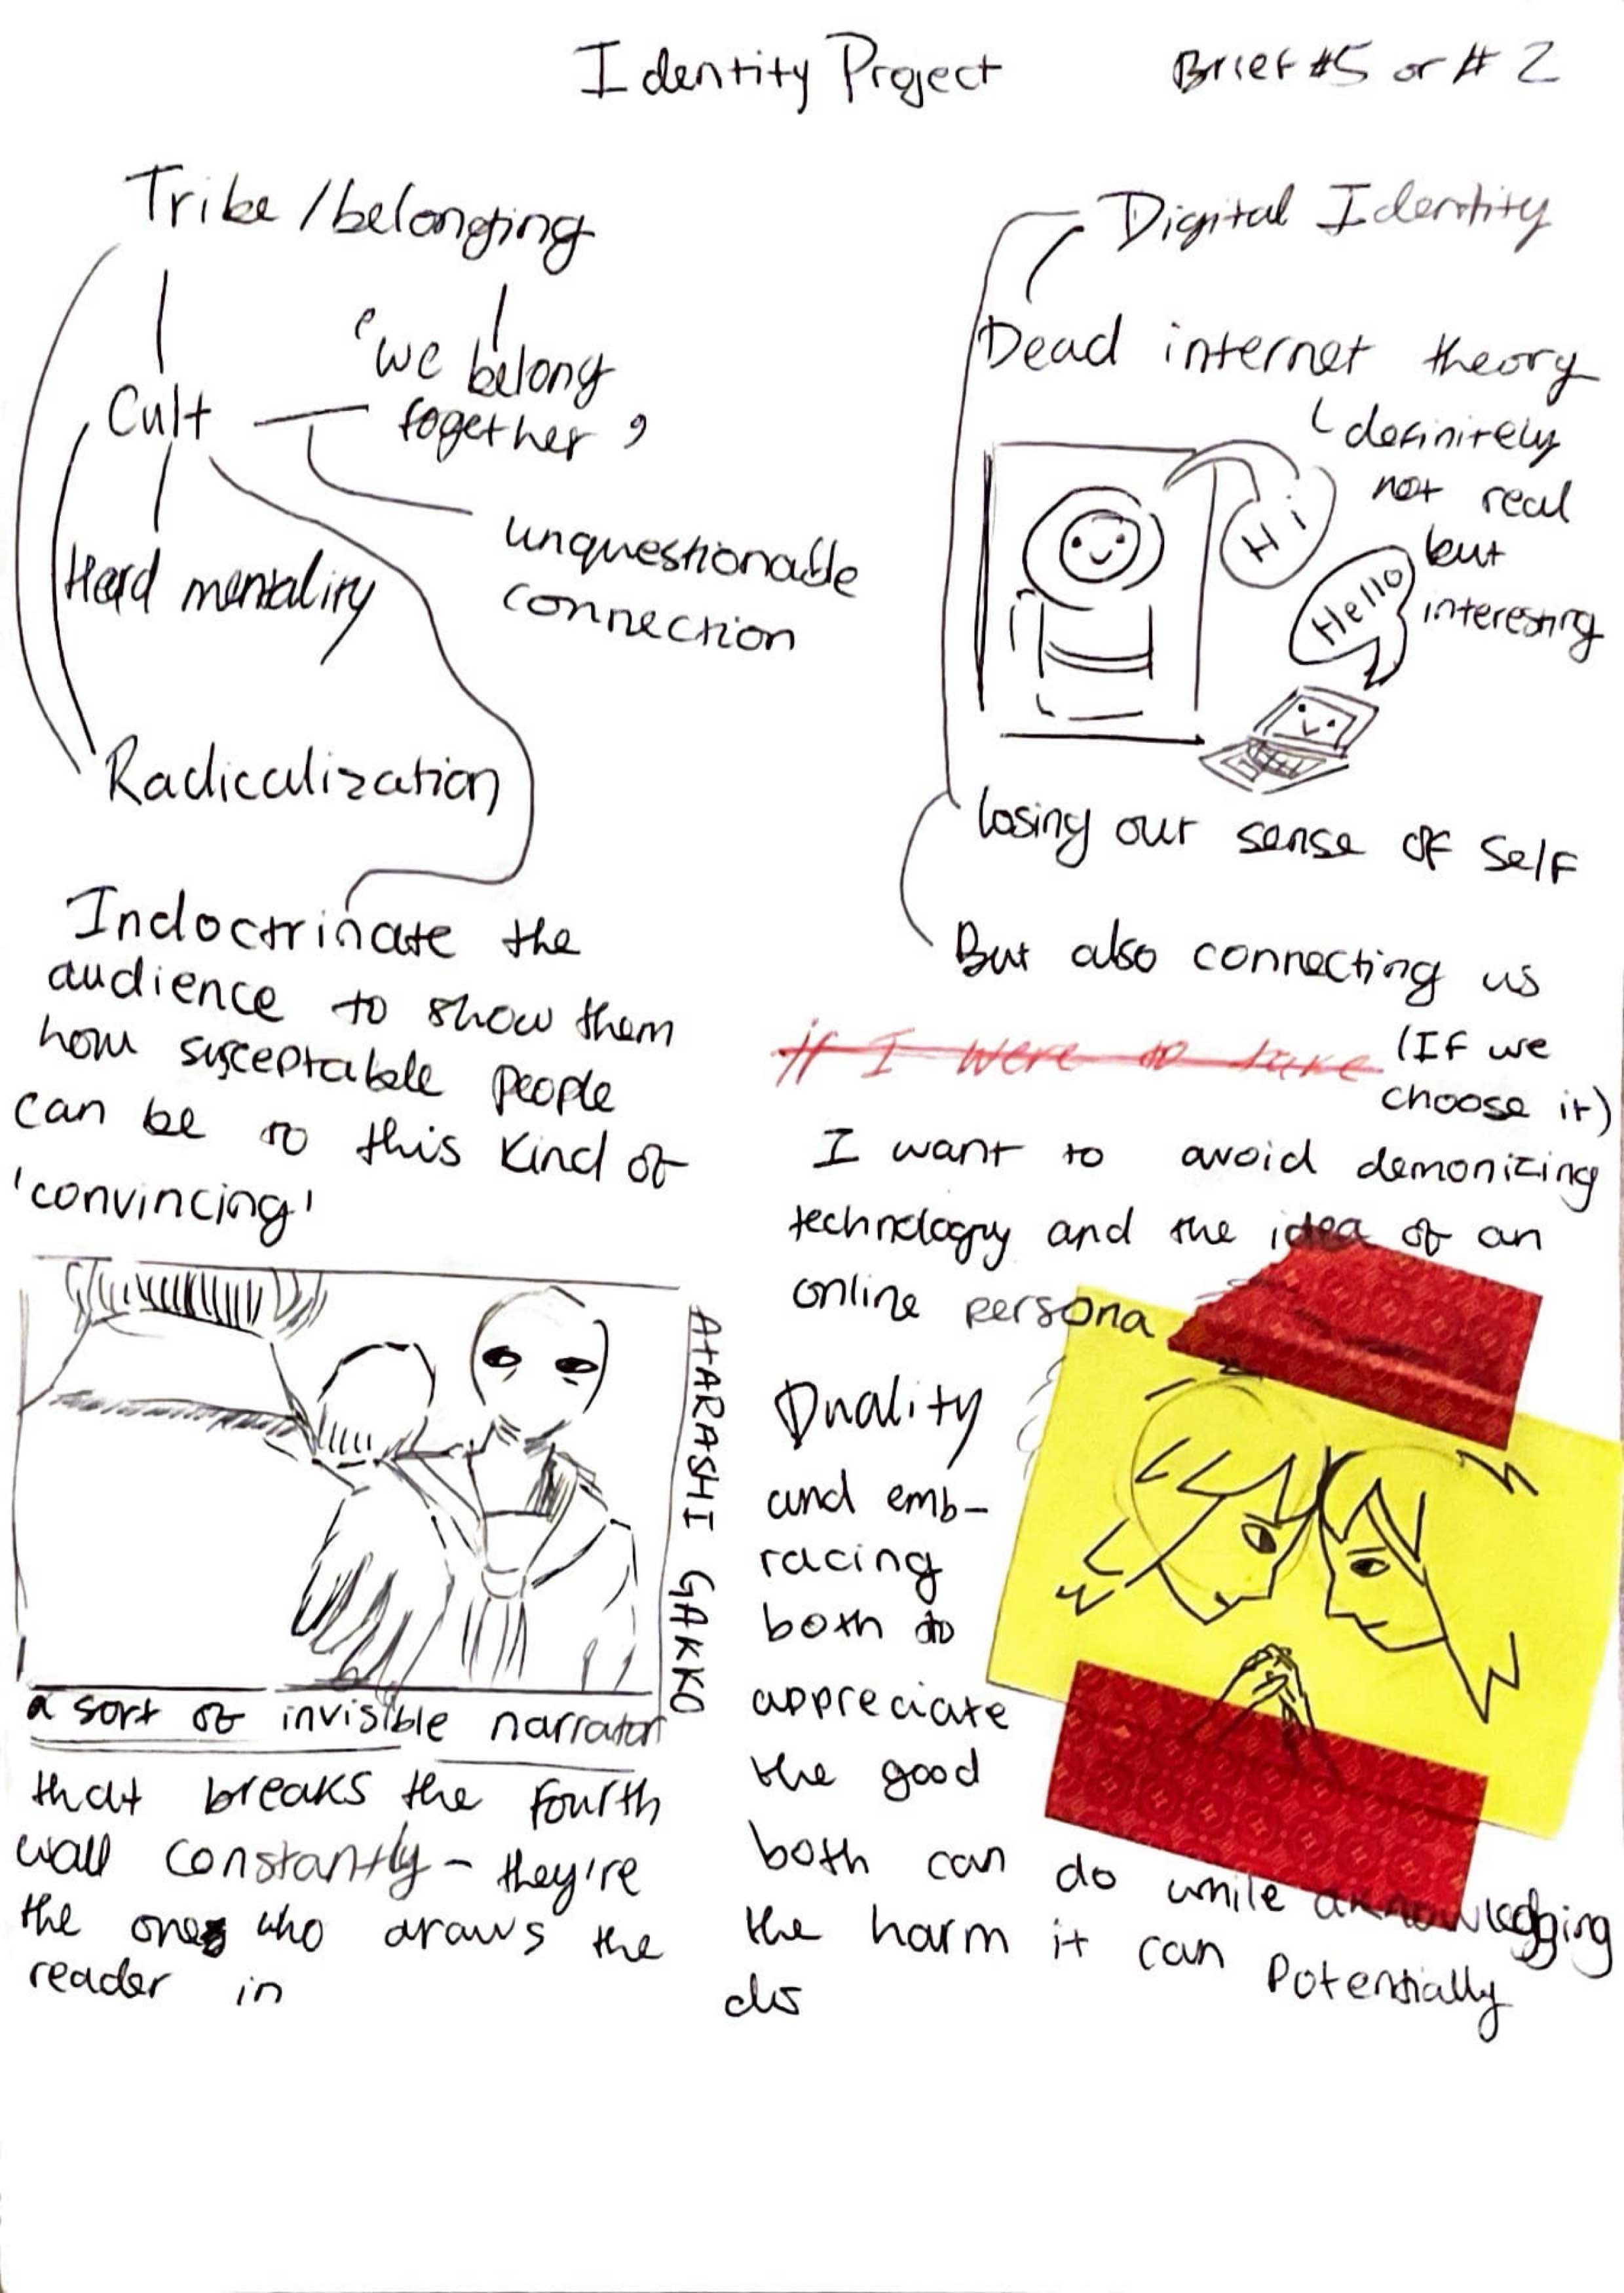 Identity Project
Brief #5 or #2
Tribe/belonging
Cult
'we belong
together'
unquestionable
connection
Herd mentality
Radicalization
Indoctrinate the
audience to show them
how susceptable people
can be to this kind of
'convincing'
ATARASHI GAKKO
a sort of invisible narrator
that breaks the fourth
wall constantly - they're
the ones who draws the
reader in
Digital Identity
Dead internet theory
definitely
not real
but
interesting
Hi
Hello
losing our sense of self
But also connecting us
(If we
choose it)
if I were to take
I want to avoid demonizing
technology and the idea of an
online persona
Duality
and emb-
racing
both to
appreciate
the good
both can do while acknowledging
the harm it can potentially
do